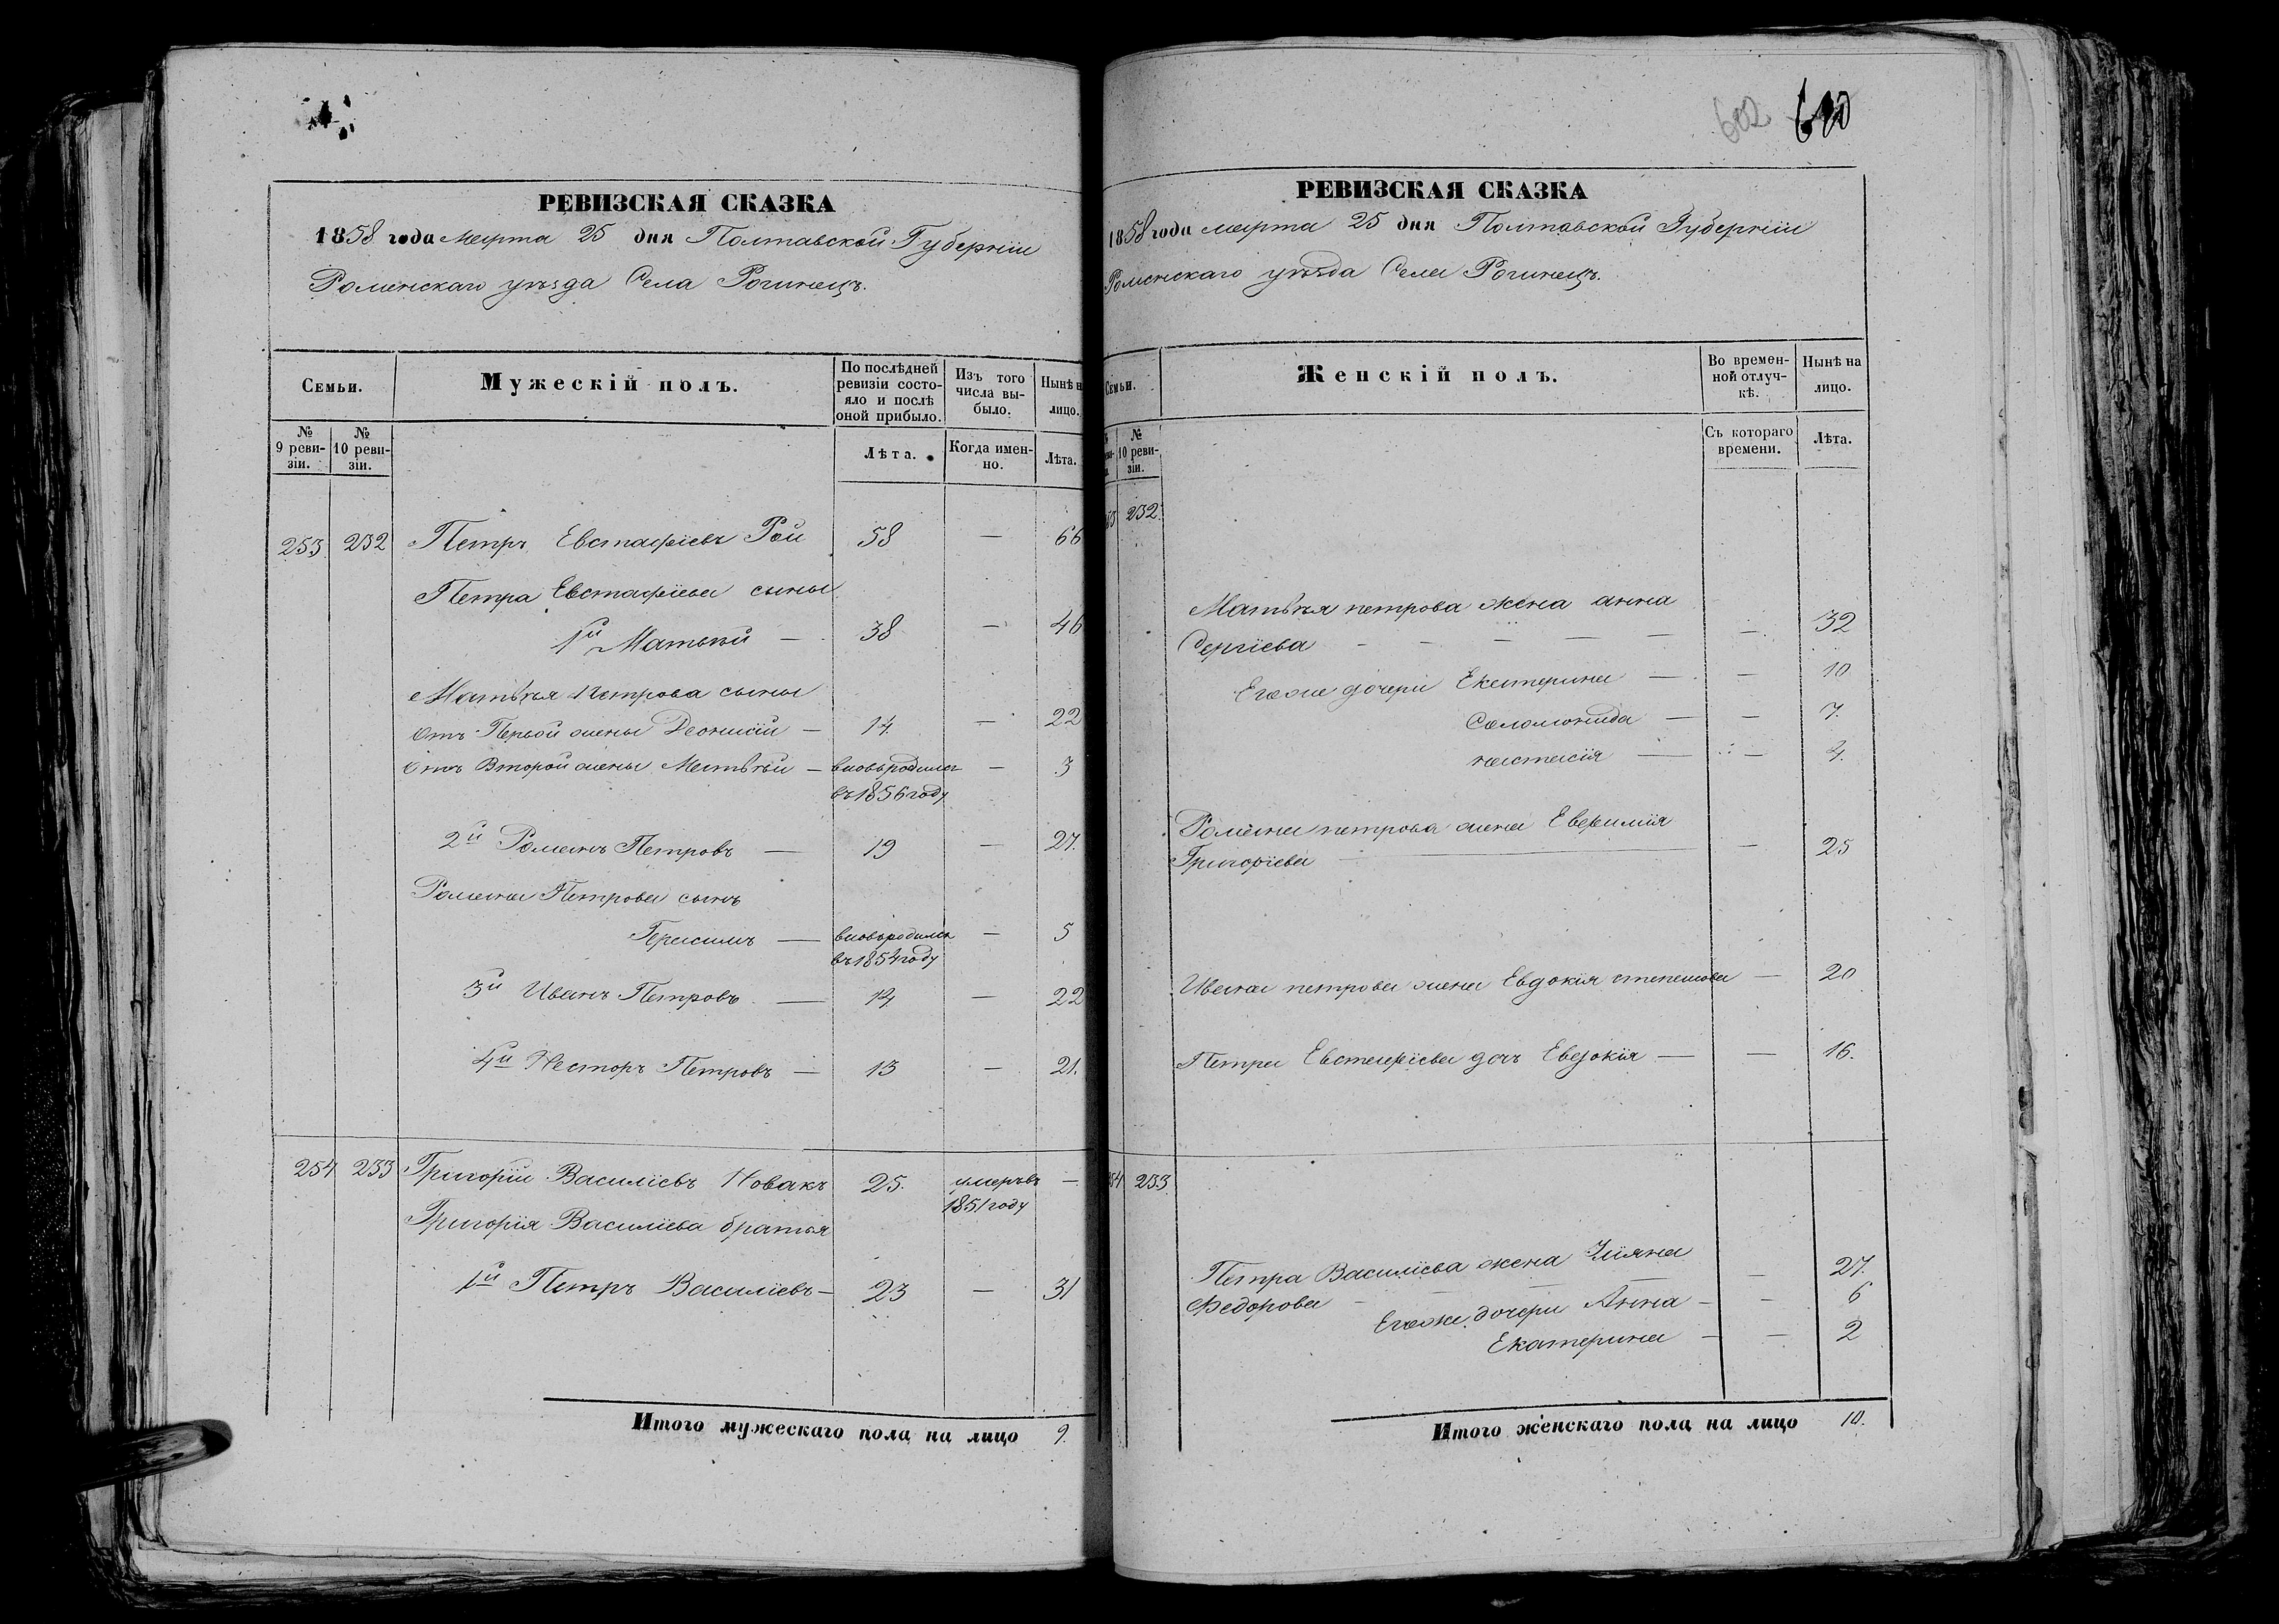 РЕВИЗСКАЯ СКАЗКА
1858 года Марта 25 дня Полтавской Губерніи
Роменскаго уѣзда Села Рогинецъ.
Семьи.
Мужескій полъ.
По послѣдней ревизіи состояло и послѣ оной прибыло.
Изъ того числа выбыло.
Нынѣ н лицо.
№ 9 ревизіи.
№ 10 ревизіи.
Лѣта.
Когда именно.
Лѣта.
253 232 Петръ Евстафіевъ Рой 58 — 66
Петра Евстафіева сыны
1й Матвѣй — 38 — 46
Матвѣя Петрова сыны
отъ Первой жены Деонисій — 14. — 22
отъ Второй жены Матвѣй — вновьродился — 3
въ 1856 году
2й Романъ Петровъ — 19 — 27.
Романа Петрова сынъ
Герасимъ — вновьродился — 5
въ 1854 году
3й Иванъ Петровъ — 14 — 22
4й Несторъ Петровъ — 13 — 21.
254 233 Григорій Василіевъ Новакъ 25. умеръ въ —
1851 году
Григорія Василіева братья
1й Петръ Василіевъ — 23 — 31
Итого мужескаго пола на лицо 9.
602 600
РЕВИЗСКАЯ СКАЗКА
1858 года марта 25 дня Полтавской Губерніи
Роменскаго уѣзда Села Рогинецъ.
Семьи.
Женскій полъ.
Во временной отлучкѣ.
Нынѣ на лицо.
№ 10 ревизіи.
Съ котораго времени.
Лѣта.
53 232.
Матвѣя петрова жена анна
Сергіева — — — — — — 32
Егоже дочери Екатерина — — 10
Соломонида — — 7.
настасія — — 4.
Романа петрова жена Евфимія
Григоріева — — 25
Ивана петрова жена Евдокія степанова — 20
Петра Евстафіева дочь Евдокія — — 16.
54 233.
Петра Василіева жена Уліяна
Федорова — — — — 27.
Егоже дочери Анна — — 6
Екатерина — — 2
Итого женскаго пола на лицо 10.